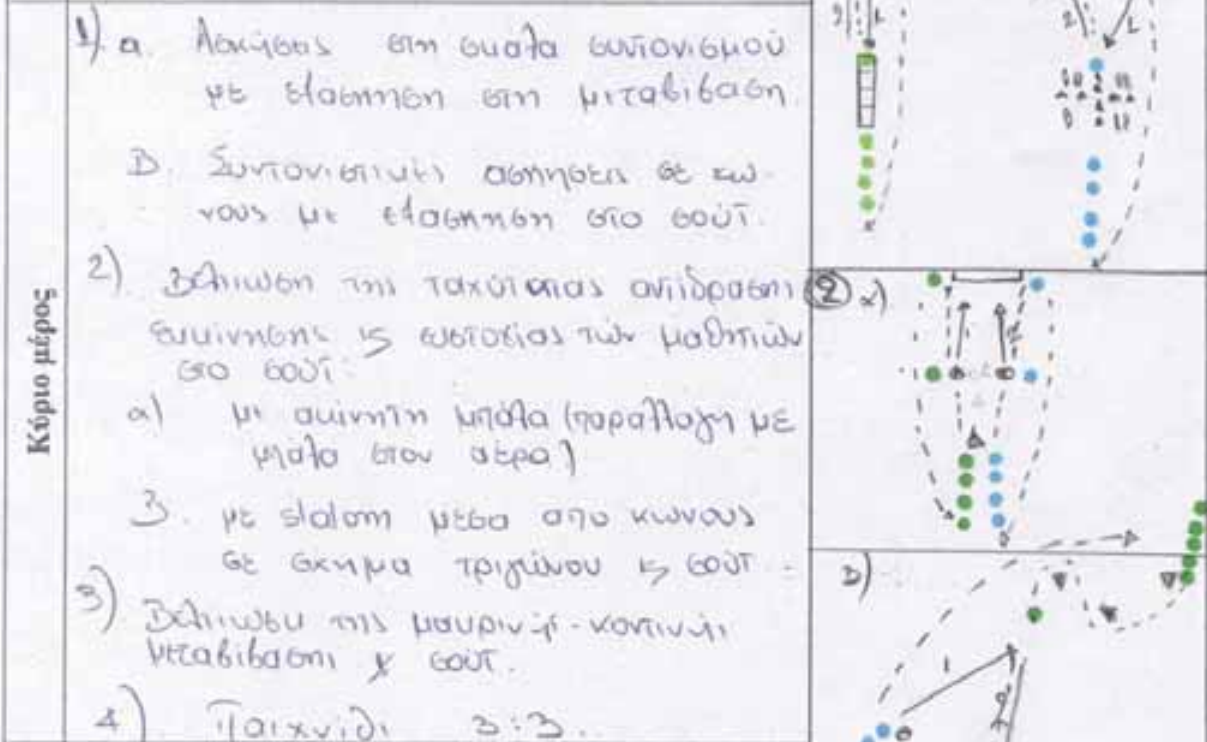 Κύριο μέρος
1) α. Ασκήσεις στη σκάλα συντονισμού
με εξάσκηση στη μεταβίβαση.
Β. Συντονιστικές ασκήσεις σε κώ-
νους με εξάσκηση στο σούτ.
2) Βελτίωση της ταχύτητας αντίδρασης
εκκίνησης ϗ ευστοχίας των μαθητών
στο σούτ.
α) με ακίνητη μπάλα (παραλλαγή με
μπάλα στον αέρα)
Β. με slalom μέσα από κώνους
σε σχήμα τριγώνου ϗ σούτ.
3) Βελτίωση της μακρινής-κοντινής
μεταβίβασης ϗ σούτ.
4) Παιχνίδι 3:3.
2 1
② α)
Β)
1